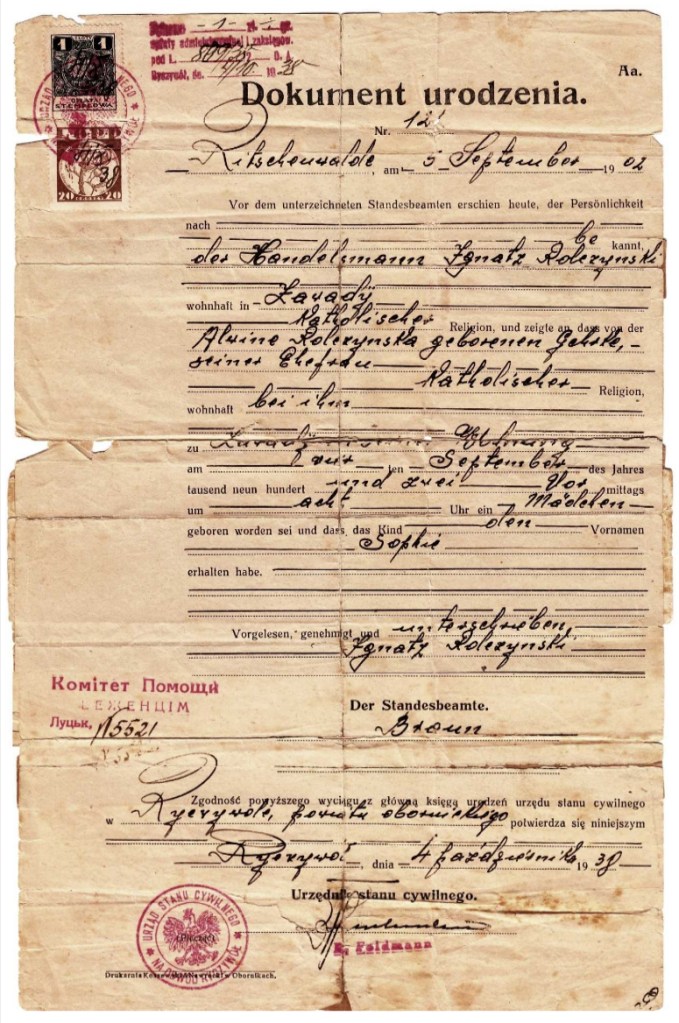 1 1
STEMPLOWA
20 20
38
Pobrano - 1 -
opłaty administracyjnej i zakleków.
pod L.
Ryczywół, dn. 4/10. 1938
Aa.
Dokument urodzenia.
Nr. 12
Ritschenwalde, am 5 September 1902
Vor dem unterzeichneten Standesbeamten erschien heute, der Persönlichkeit
nach be kannt,
der Handelsmann Ignatz Rolczynski
wohnhaft in Zawady
Katholischer Religion, und zeigte an, dass von der
Alwine Rolczynska geborenen Gehrke,
seiner Ehefrau
Katholischer Religion,
wohnhaft bei ihm
zu Zawady Wohnung
am ten September des Jahres
tausend neun hundert und zwei Vor mittags
um acht Uhr ein Mädchen
geboren worden sei und dass das Kind den Vornamen
Sophie
erhalten habe.
Vorgelesen, genehmigt und unterschrieben,
Ignatz Rolczynski
Комітет Помощи
БЕЖЕНЦІМ
Луцьк, N5521
Der Standesbeamte.
Braun
Zgodność powyższego wyciągu z główną księgą urodzeń urzędu stanu cywilnego
w Ryczywole, powiatu obornickiego potwierdza się niniejszym
Ryczywół, dnia 4 października 1938
Urzędnik stanu cywilnego.
E. Feldmann
URZĄD STANU CYWILNEGO
NA OBWÓD RYCZYWÓŁ
(Pieczęć)
Obornikach.